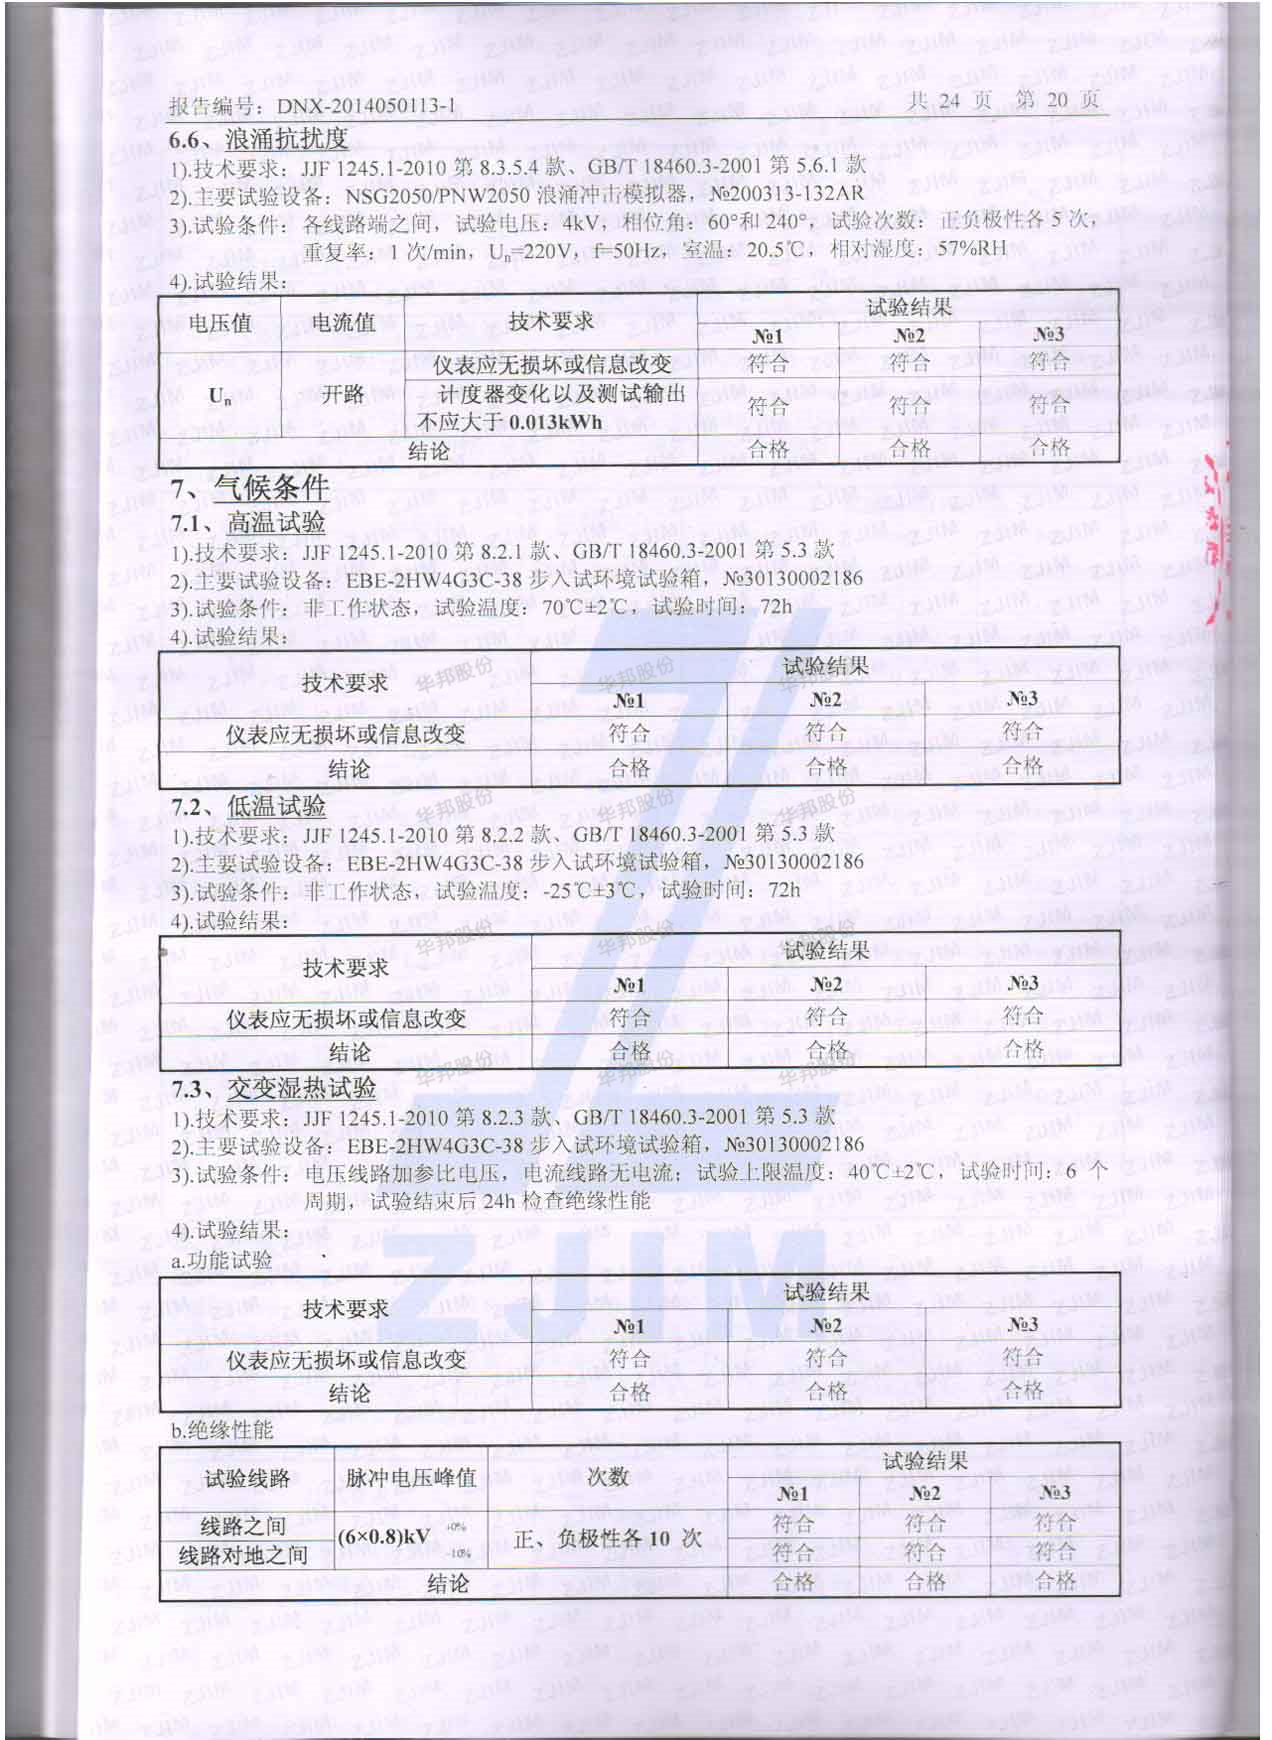 报告编号：DNX-2014050113-1
共 24 页 第 20 页
6.6、浪涌抗扰度
1).技术要求：JJF 1245.1-2010 第 8.3.5.4 款、GB/T 18460.3-2001 第 5.6.1 款
2).主要试验设备：NSG2050/PNW2050 浪涌冲击模拟器，№200313-132AR
3).试验条件：各线路端之间，试验电压：4kV，相位角：60°和 240°，试验次数：正负极性各 5 次，
重复率：1 次/min，Un=220V，f=50Hz，室温：20.5℃，相对湿度：57%RH
4).试验结果：
电压值 电流值 技术要求 试验结果
№1 №2 №3
仪表应无损坏或信息改变 符合 符合 符合
Un 开路 计度器变化以及测试输出
不应大于 0.013kWh 符合 符合 符合
结论 合格 合格 合格
7、气候条件
7.1、高温试验
1).技术要求：JJF 1245.1-2010 第 8.2.1 款、GB/T 18460.3-2001 第 5.3 款
2).主要试验设备：EBE-2HW4G3C-38 步入试环境试验箱，№30130002186
3).试验条件：非工作状态，试验温度：70℃±2℃，试验时间：72h
4).试验结果：
技术要求 试验结果
№1 №2 №3
仪表应无损坏或信息改变 符合 符合 符合
结论 合格 合格 合格
7.2、低温试验
1).技术要求：JJF 1245.1-2010 第 8.2.2 款、GB/T 18460.3-2001 第 5.3 款
2).主要试验设备：EBE-2HW4G3C-38 步入试环境试验箱，№30130002186
3).试验条件：非工作状态，试验温度：-25℃±3℃，试验时间：72h
4).试验结果：
技术要求 试验结果
№1 №2 №3
仪表应无损坏或信息改变 符合 符合 符合
结论 合格 合格 合格
7.3、交变湿热试验
1).技术要求：JJF 1245.1-2010 第 8.2.3 款、GB/T 18460.3-2001 第 5.3 款
2).主要试验设备：EBE-2HW4G3C-38 步入试环境试验箱，№30130002186
3).试验条件：电压线路加参比电压，电流线路无电流；试验上限温度：40℃±2℃，试验时间：6 个
周期，试验结束后 24h 检查绝缘性能
4).试验结果：
a.功能试验
技术要求 试验结果
№1 №2 №3
仪表应无损坏或信息改变 符合 符合 符合
结论 合格 合格 合格
b.绝缘性能
试验线路 脉冲电压峰值 次数 试验结果
№1 №2 №3
线路之间 符合 符合 符合
(6×0.8)kV +0% -10% 正、负极性各 10 次
线路对地之间 符合 符合 符合
结论 合格 合格 合格
华邦股份 华邦股份 华邦股份
华邦股份 华邦股份 华邦股份
华邦股份 华邦股份 华邦股份
华邦股份 华邦股份 华邦股份
ZJIM